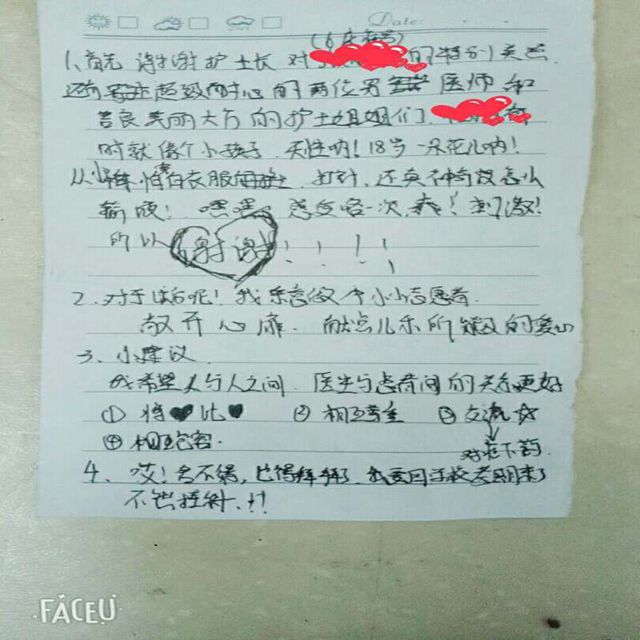 Date:
1、首先谢谢护士长对 的特别关怀
还有 超级耐心的两位男 医师和
善良美丽大方的护士姐姐们
时就像个小孩子、天性呐!18岁一朵花儿呐!
从小 怕白衣服 打针,还真不知道怎么
输液!嘿嘿、感受啥一次,刺激!
所以 谢谢!!!!
2、对于以后呢!我乐意做个小小志愿者
敞开心扉、献点儿乐所能及的爱心
3、小建议
我希望人与人之间、医生与患者间的关系更好
① 将♥比♥ ② 相互尊重 ③ 交流☆
④ 相互包容.
4、哎!舍不得, 也得拜拜了、我要回学校 明天了
不
FACEU